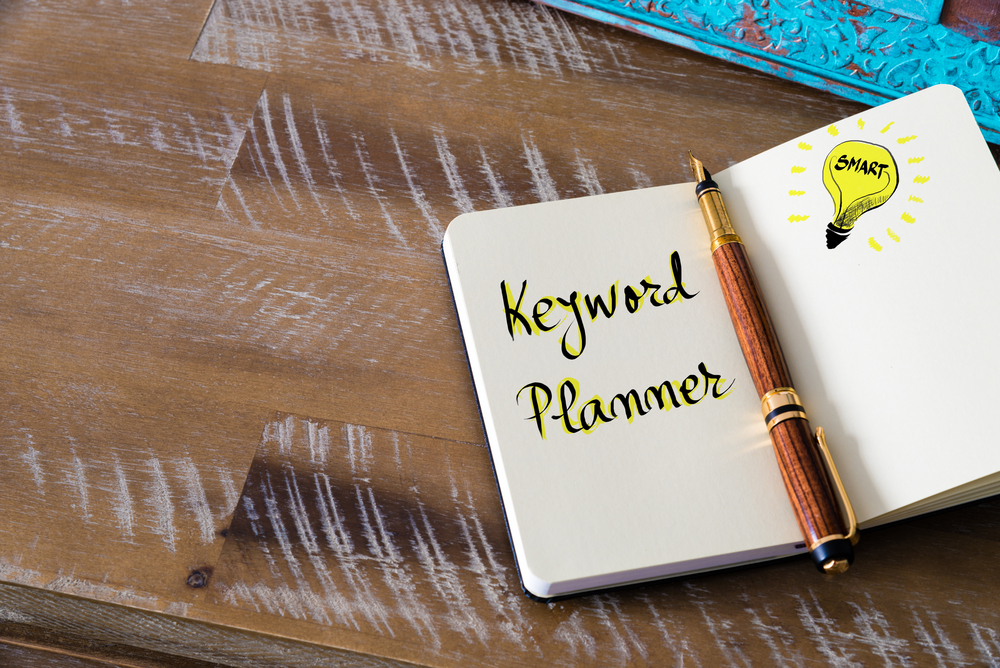 Keyword
Planner
SMART